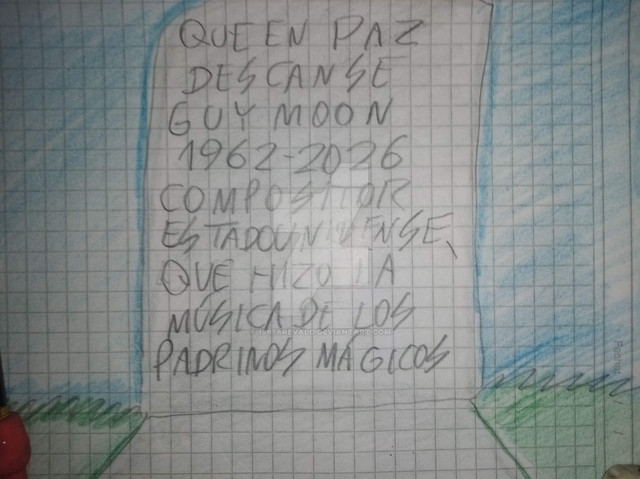 QUE EN PAZ
DESCANSE
GUY MOON
1962-2026
COMPOSITOR
ESTADOUNIDENSE,
QUE HIZO LA
MÚSICA DE LOS
PADRINOS MÁGICOS